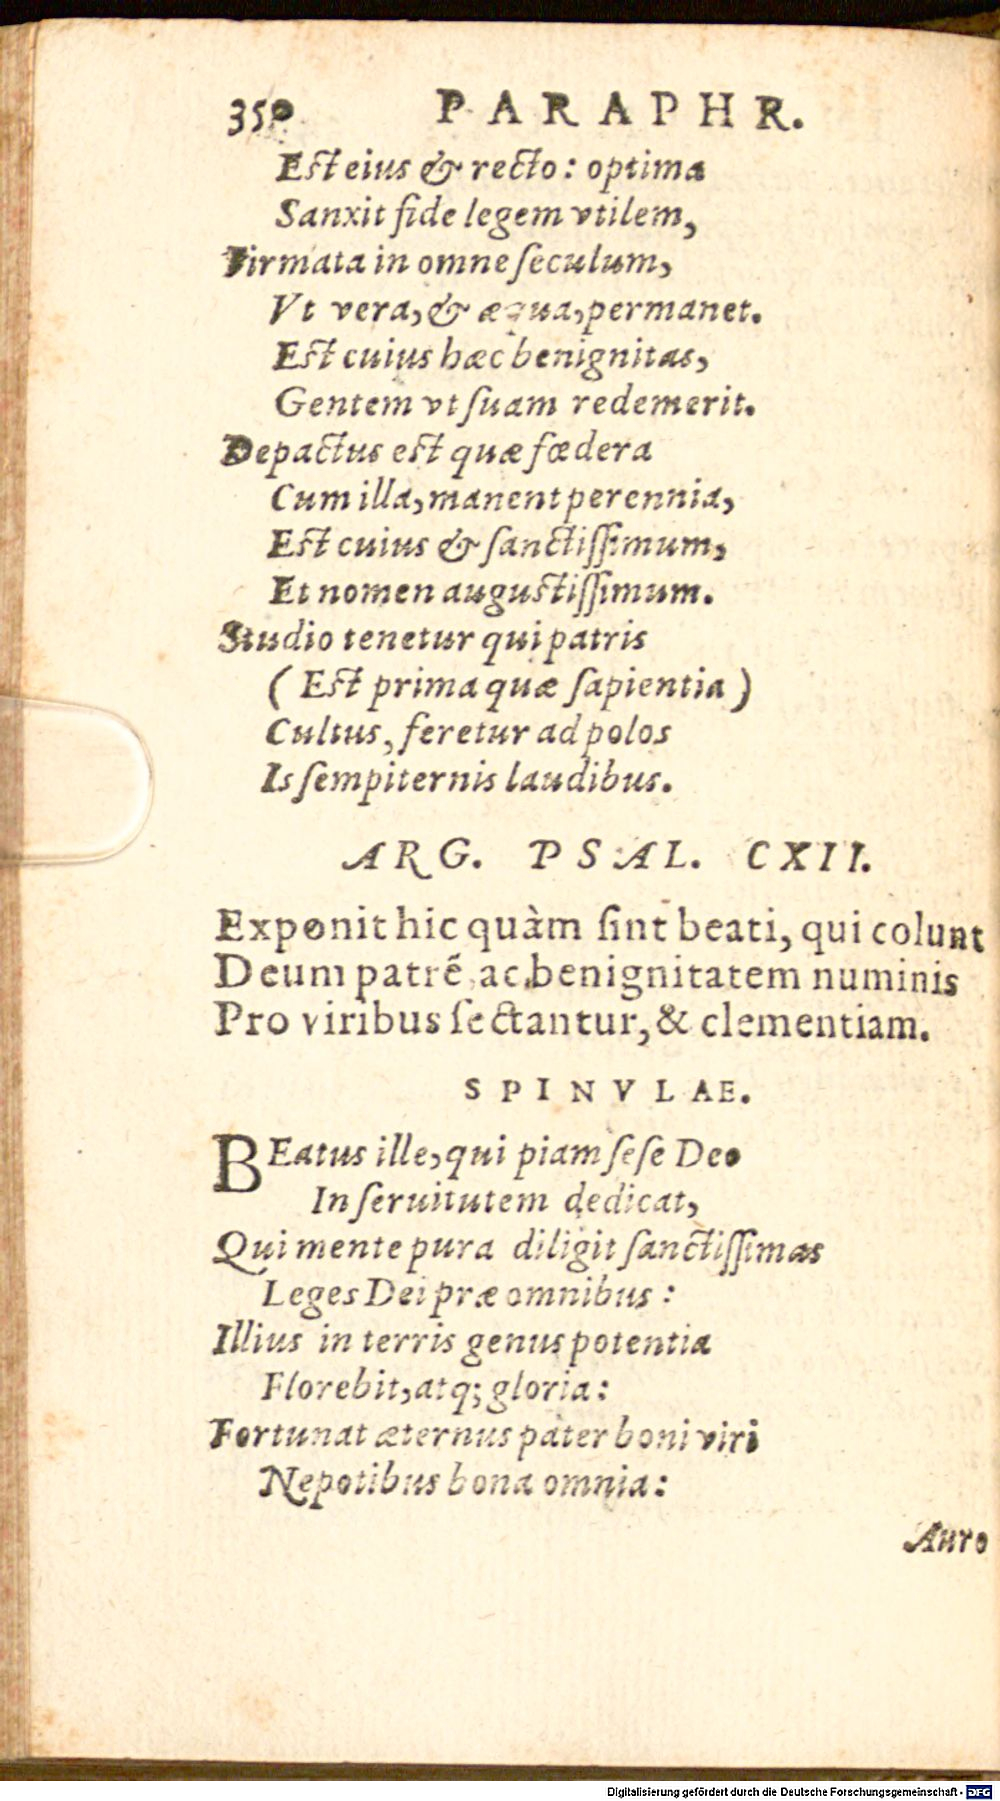 350 PARAPHR.
Est eius & recto: optima
Sanxit fide legem vtilem,
Firmata in omne ſeculum,
Vt vera, & æqua, permanet.
Est cuius hæc benignitas,
Gentem vt ſuam redemerit.
Depactus est quæ fœdera
Cum illa, manent perennia,
Est cuius & ſanctiſſimum,
Et nomen auguſtiſſimum.
Studio tenetur qui patris
( Est prima quæ ſapientia )
Cultus, feretur ad polos
Is ſempiternis laudibus.
ARG. PSAL. CXII.
Exponit hic quàm ſint beati, qui colunt
Deum patrē ac benignitatem numinis
Pro viribus ſectantur, & clementiam.
SPINVLAE.
BEatus ille, qui piam ſeſe Deo
In ſeruitutem dedicat,
Qui mente pura diligit ſanctiſſimas
Leges Dei præ omnibus :
Illius in terris genus potentia
Florebit, atq; gloria:
Fortunat æternus pater boni viri
Nepotibus bona omnia:
Auro
Digitalisierung gefördert durch die Deutsche Forschungsgemeinschaft - DFG